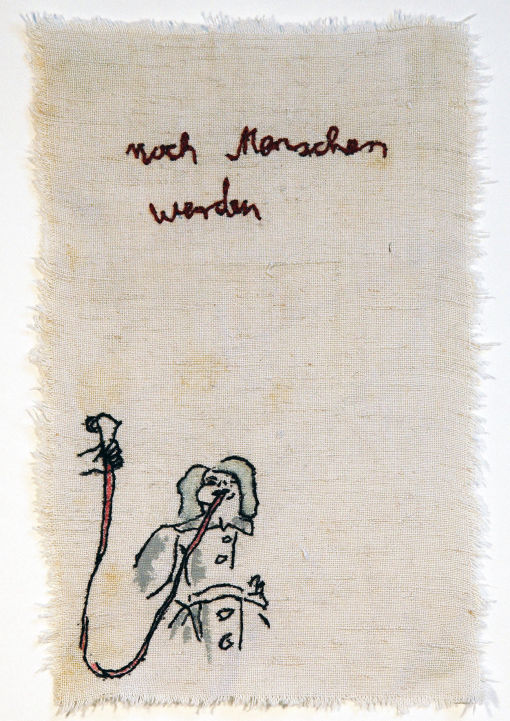 noch Menschen
werden